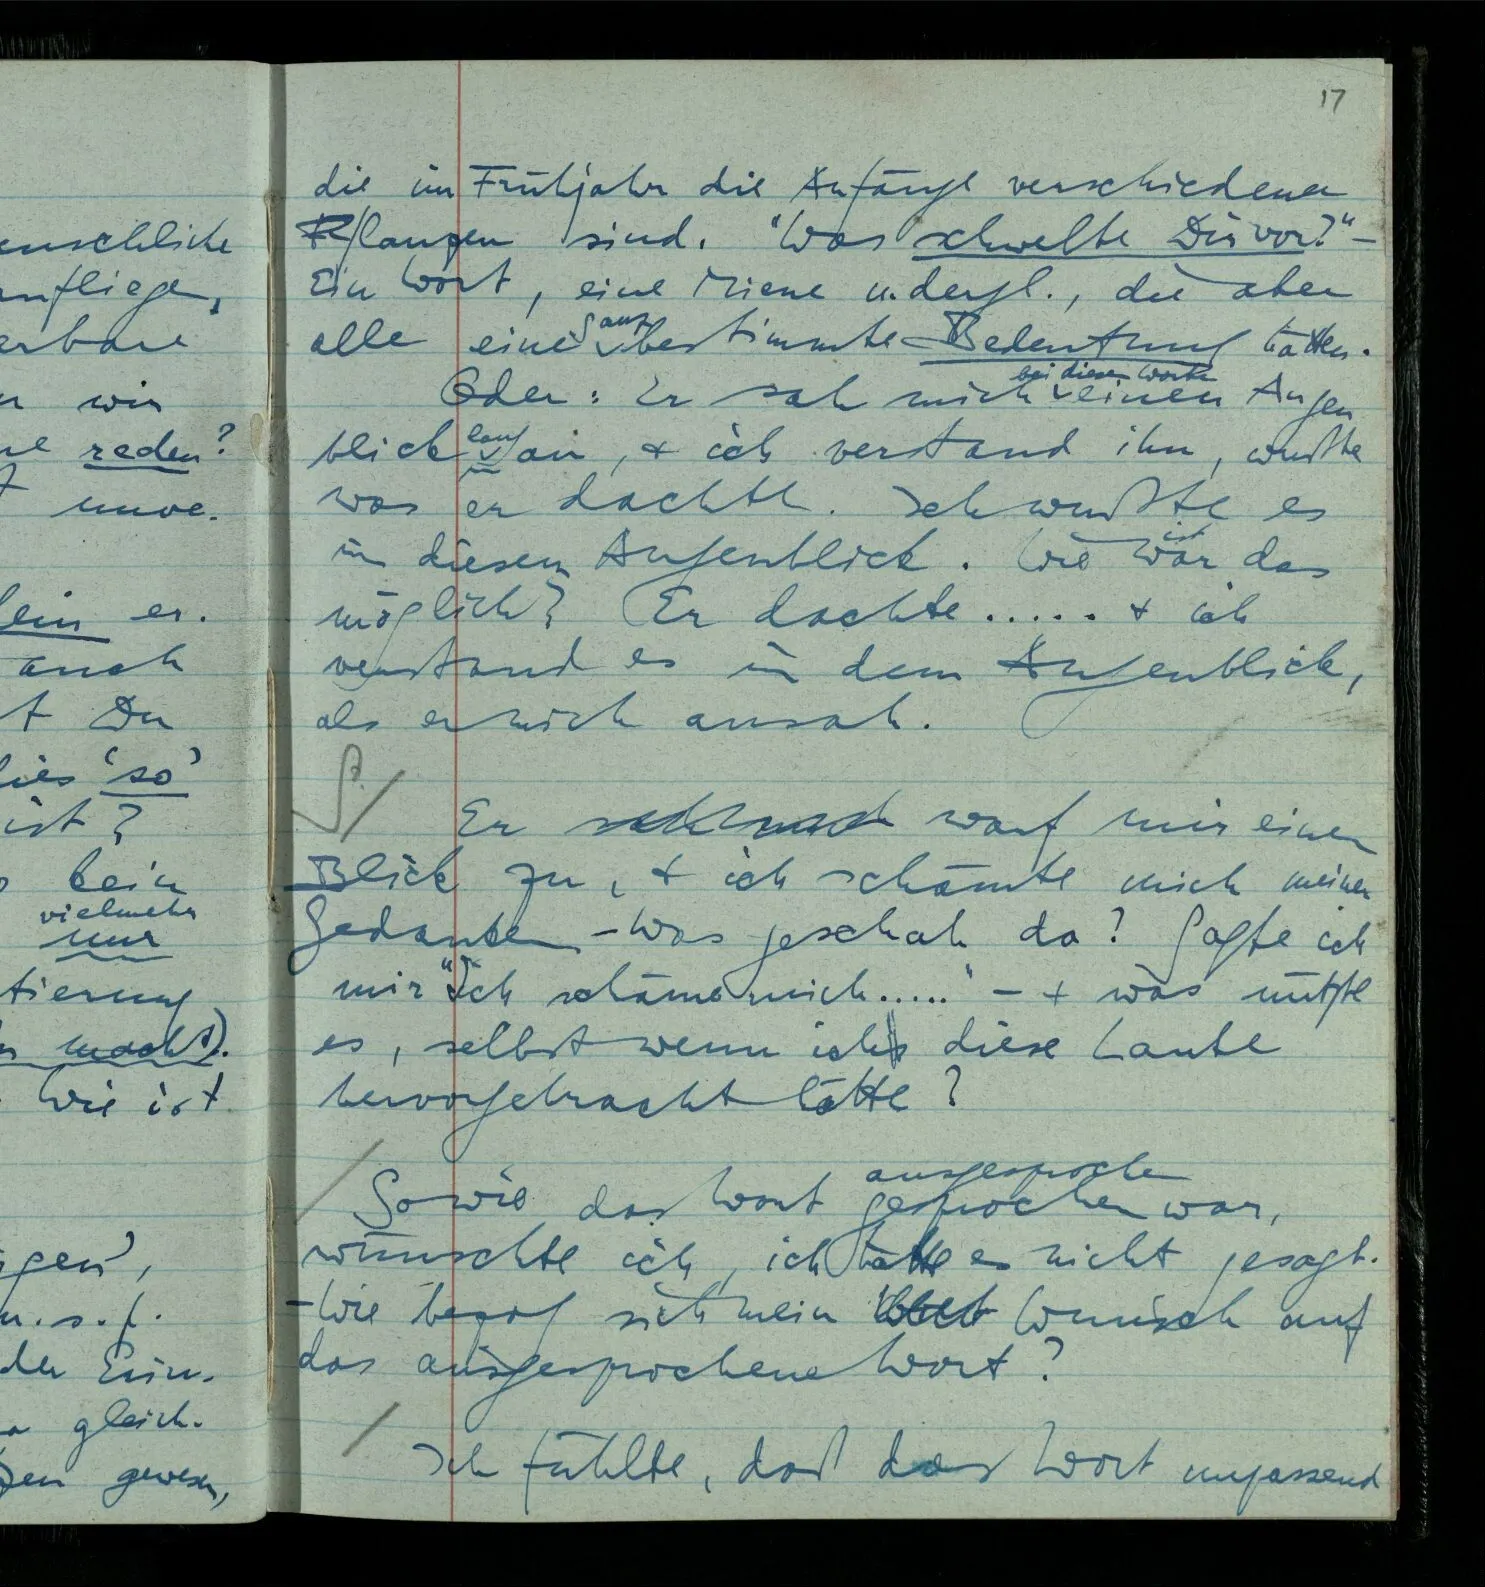 17
enschliche
nfliegen,
erbare
wir
reden?
unve-
lein er-
auch
t Du
dies 'so'
ist?
kein
vielmehr
nur
tierung
macht).
Wie ist
gen',
u.s.f.
der Erin-
gleich-
gewesen,
die im Frühjahr die Anfänge verschiedener
Pflanzen sind. "Was schwebte Dir vor?" –
Ein Wort, eine Miene u. dergl., die aber
alle eine ganz bestimmte Bedeutung hätten.
Oder: Er sah mich bei diesen Worten einen Augen
blick lang an, & ich verstand ihn, wußte
was er dachte. Ich wußte es
in diesem Augenblick. Wie war ist das
möglich? Er dachte ..... & ich
verstand es in dem Augenblick,
als er mich ansah.
Er warf mir einen
Blick zu, & ich schämte mich meiner
Gedanken – Was geschah da? Sagte ich
mir "Ich schäme mich....." – & was nützte
es, selbst wenn ich diese Laute
hervorgebracht hätte?
Sowie das Wort gesprochen ausgesprochen war,
wünschte ich, ich hätte es nicht gesagt.
– Wie bezog sich mein Wunsch auf
das ausgesprochene Wort?
Ich fühlte, daß das Wort unpassend